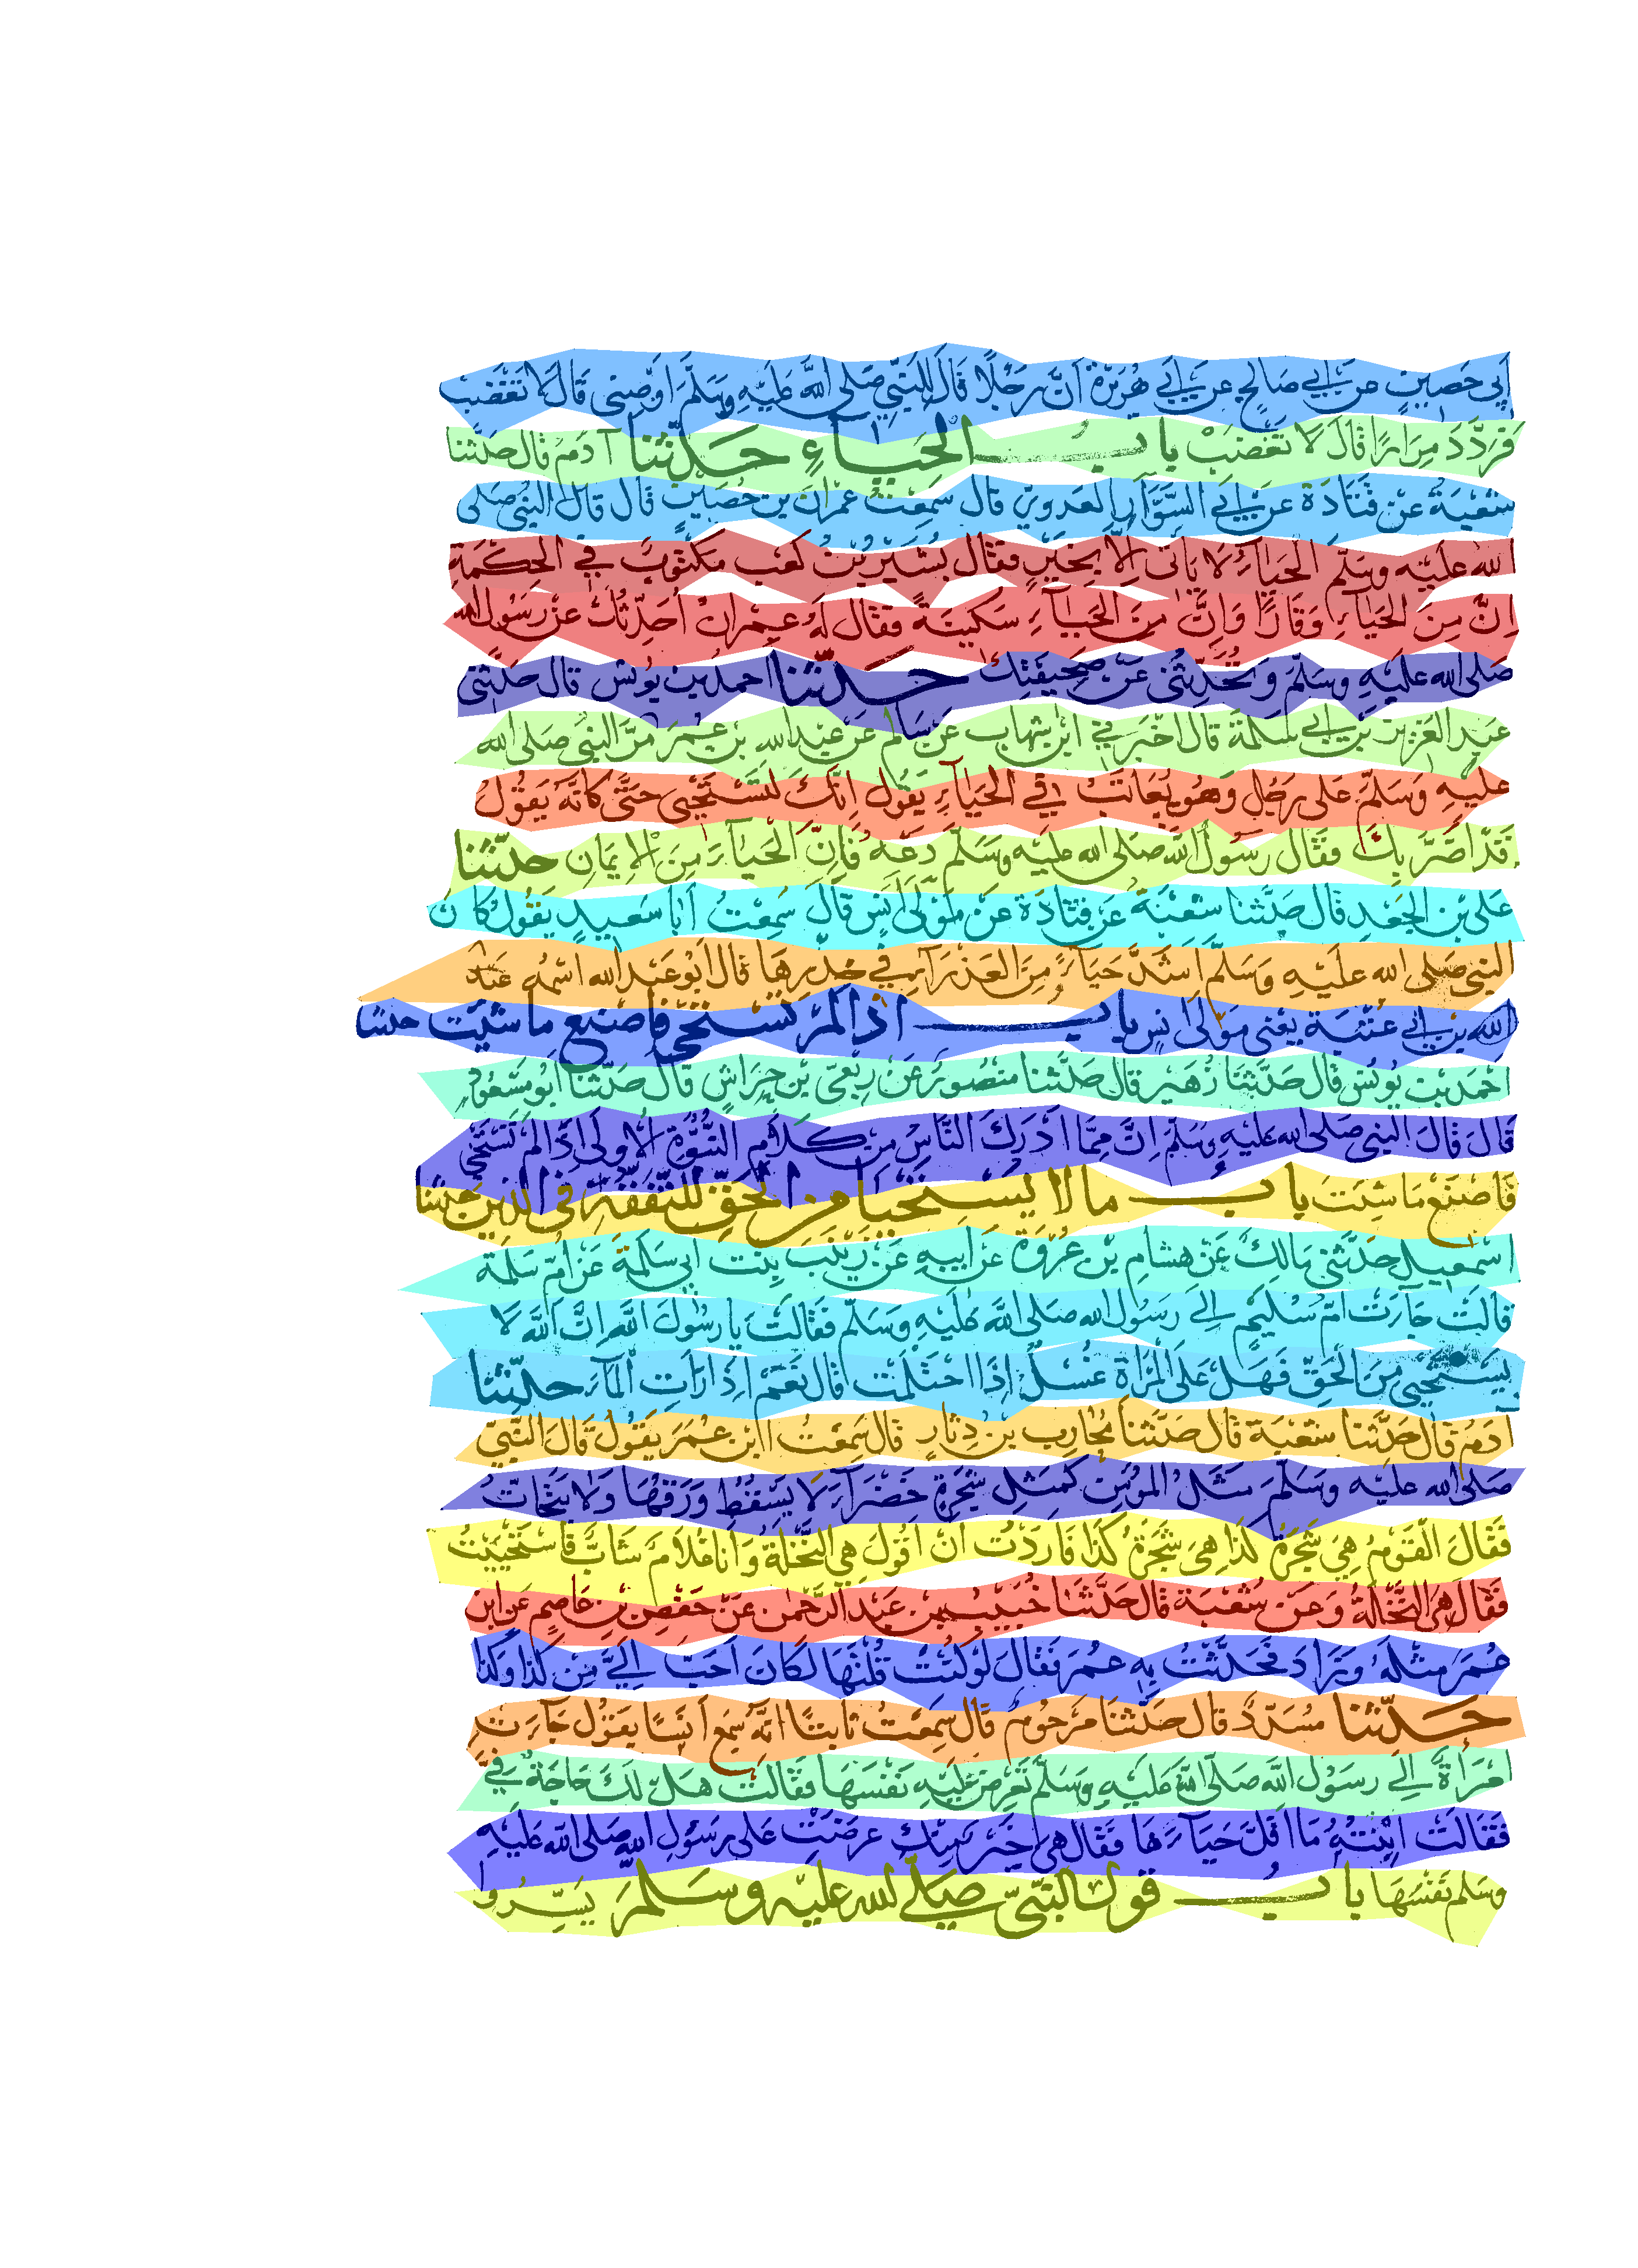 أبي حصين عن أبي صالح عن أبي هريرة أنّ رجلًا قال للنبي صلى الله عليه وسلم أوصني قال لا تغضب
فردّد مرارًا قال لا تغضب باب الحياء حدّثنا آدم قال حدثنا
شعبة عن قتادة عن أبي السّوّار العدوي قال سمعت عمران بن حصين قال قال النبي صلى
الله عليه وسلم الحياء لا يأتي إلّا بخير فقال بُشير بن كعب مكتوب في الحكمة
إنّ من الحياء وقارًا وإنّ من الحياء سكينة فقال له عمران أحدّثك عن رسول الله
صلى الله عليه وسلم وتحدّثني عن صحيفتك حدّثنا احمد بن يونس قال حدّثني
عبد العزيز بن أبي سلمة قال أخبرني ابن شهاب عن سالم عن عبد الله بن عمر مرّ النبي صلى الله
عليه وسلّم على رجل وهو يعاتب في الحياء يقول إنّك لتستحيي حتّى كأنّه يقول
قد أضرّ بك فقال رسول الله صلى الله عليه وسلم دعه فإنّ الحياء من الإيمان حدّثنا
على بن الجعد قال حدّثنا شعبة عن قتادة عن مولى أنس قال سمعت أبا سعيد يقول كان
النبي صلى الله عليه وسلّم أشدّ حياءً من العذراء في خدرها قال أبو عبد الله اسمه عبد
الله بن أبي عتبة يعني مولى انس باب اذا لم تستحي فاصنع ما شئت حدثنا
أحمد بن يونس قال حدّثنا زهير قال حدّثنا منصور عن ربعيّ بن حراش قال حدّثنا أبو مسعود
قال قال النبي صلى الله عليه وسلم إنّ ممّا أدرك النّاس من كلام النّبوّة الأولى إذا لم تستحي
فاصنع ما شئت باب ما لا يستحيا من الحقّ للتّفقّه في الدين حدثنا
اسمعيل حدّثني مالك عن هشام بن عروة عن أبيه عن زينب بنت أبي سلمة عن أمّ سلمة
قالت جاءت أمّ سليم إلى رسول الله صلى الله عليه وسلّم فقالت يا رسول الله إنّ الله لا
يستحيي من الحقّ فهل على المرأة غسل إذا احتلمت قال نعم إذا رأت الماء حدّثنا
آدم قال حدّثنا شعبة قال حدّثنا محارب بن دثار قال سمعت ابن عمر يقول قال النّبيّ
صلى الله عليه وسلم مثل المؤمن كمثل شجرة خضراء لا يسقط ورقها ولا يتحاتّ
فقال القوم هي شجرة كذا هي شجرة كذا فاردت أن أقول هي النّخلة وأنا غلام شابّ فاستحييت
فقال هي النّخلة وعن شعبة قال حدّثنا خبيب بن عبد الرّحمن عن حفص بن عاصم عن ابن
عمر مثله وزاد فحدّثت به عمر فقال لو كنت قلتها لكان أحبّ إليّ من كذا وكذا
حدّثنا مسدّد قال حدّثنا مرحوم قال سمعت ثابتًا أنّه سمع أنسًا يقول جاءت
امرأة إلى رسول الله صلى الله عليه وسلّم تعرض عليه نفسها فقالت هل لك حاجة فيّ
فقالت ابنته ما أقلّ حياءها فقال هي خير منك عرضت على رسول الله صلى الله عليه
وسلم نفسها باب قول النّبيّ صلى الله عليه وسلم يسّروا